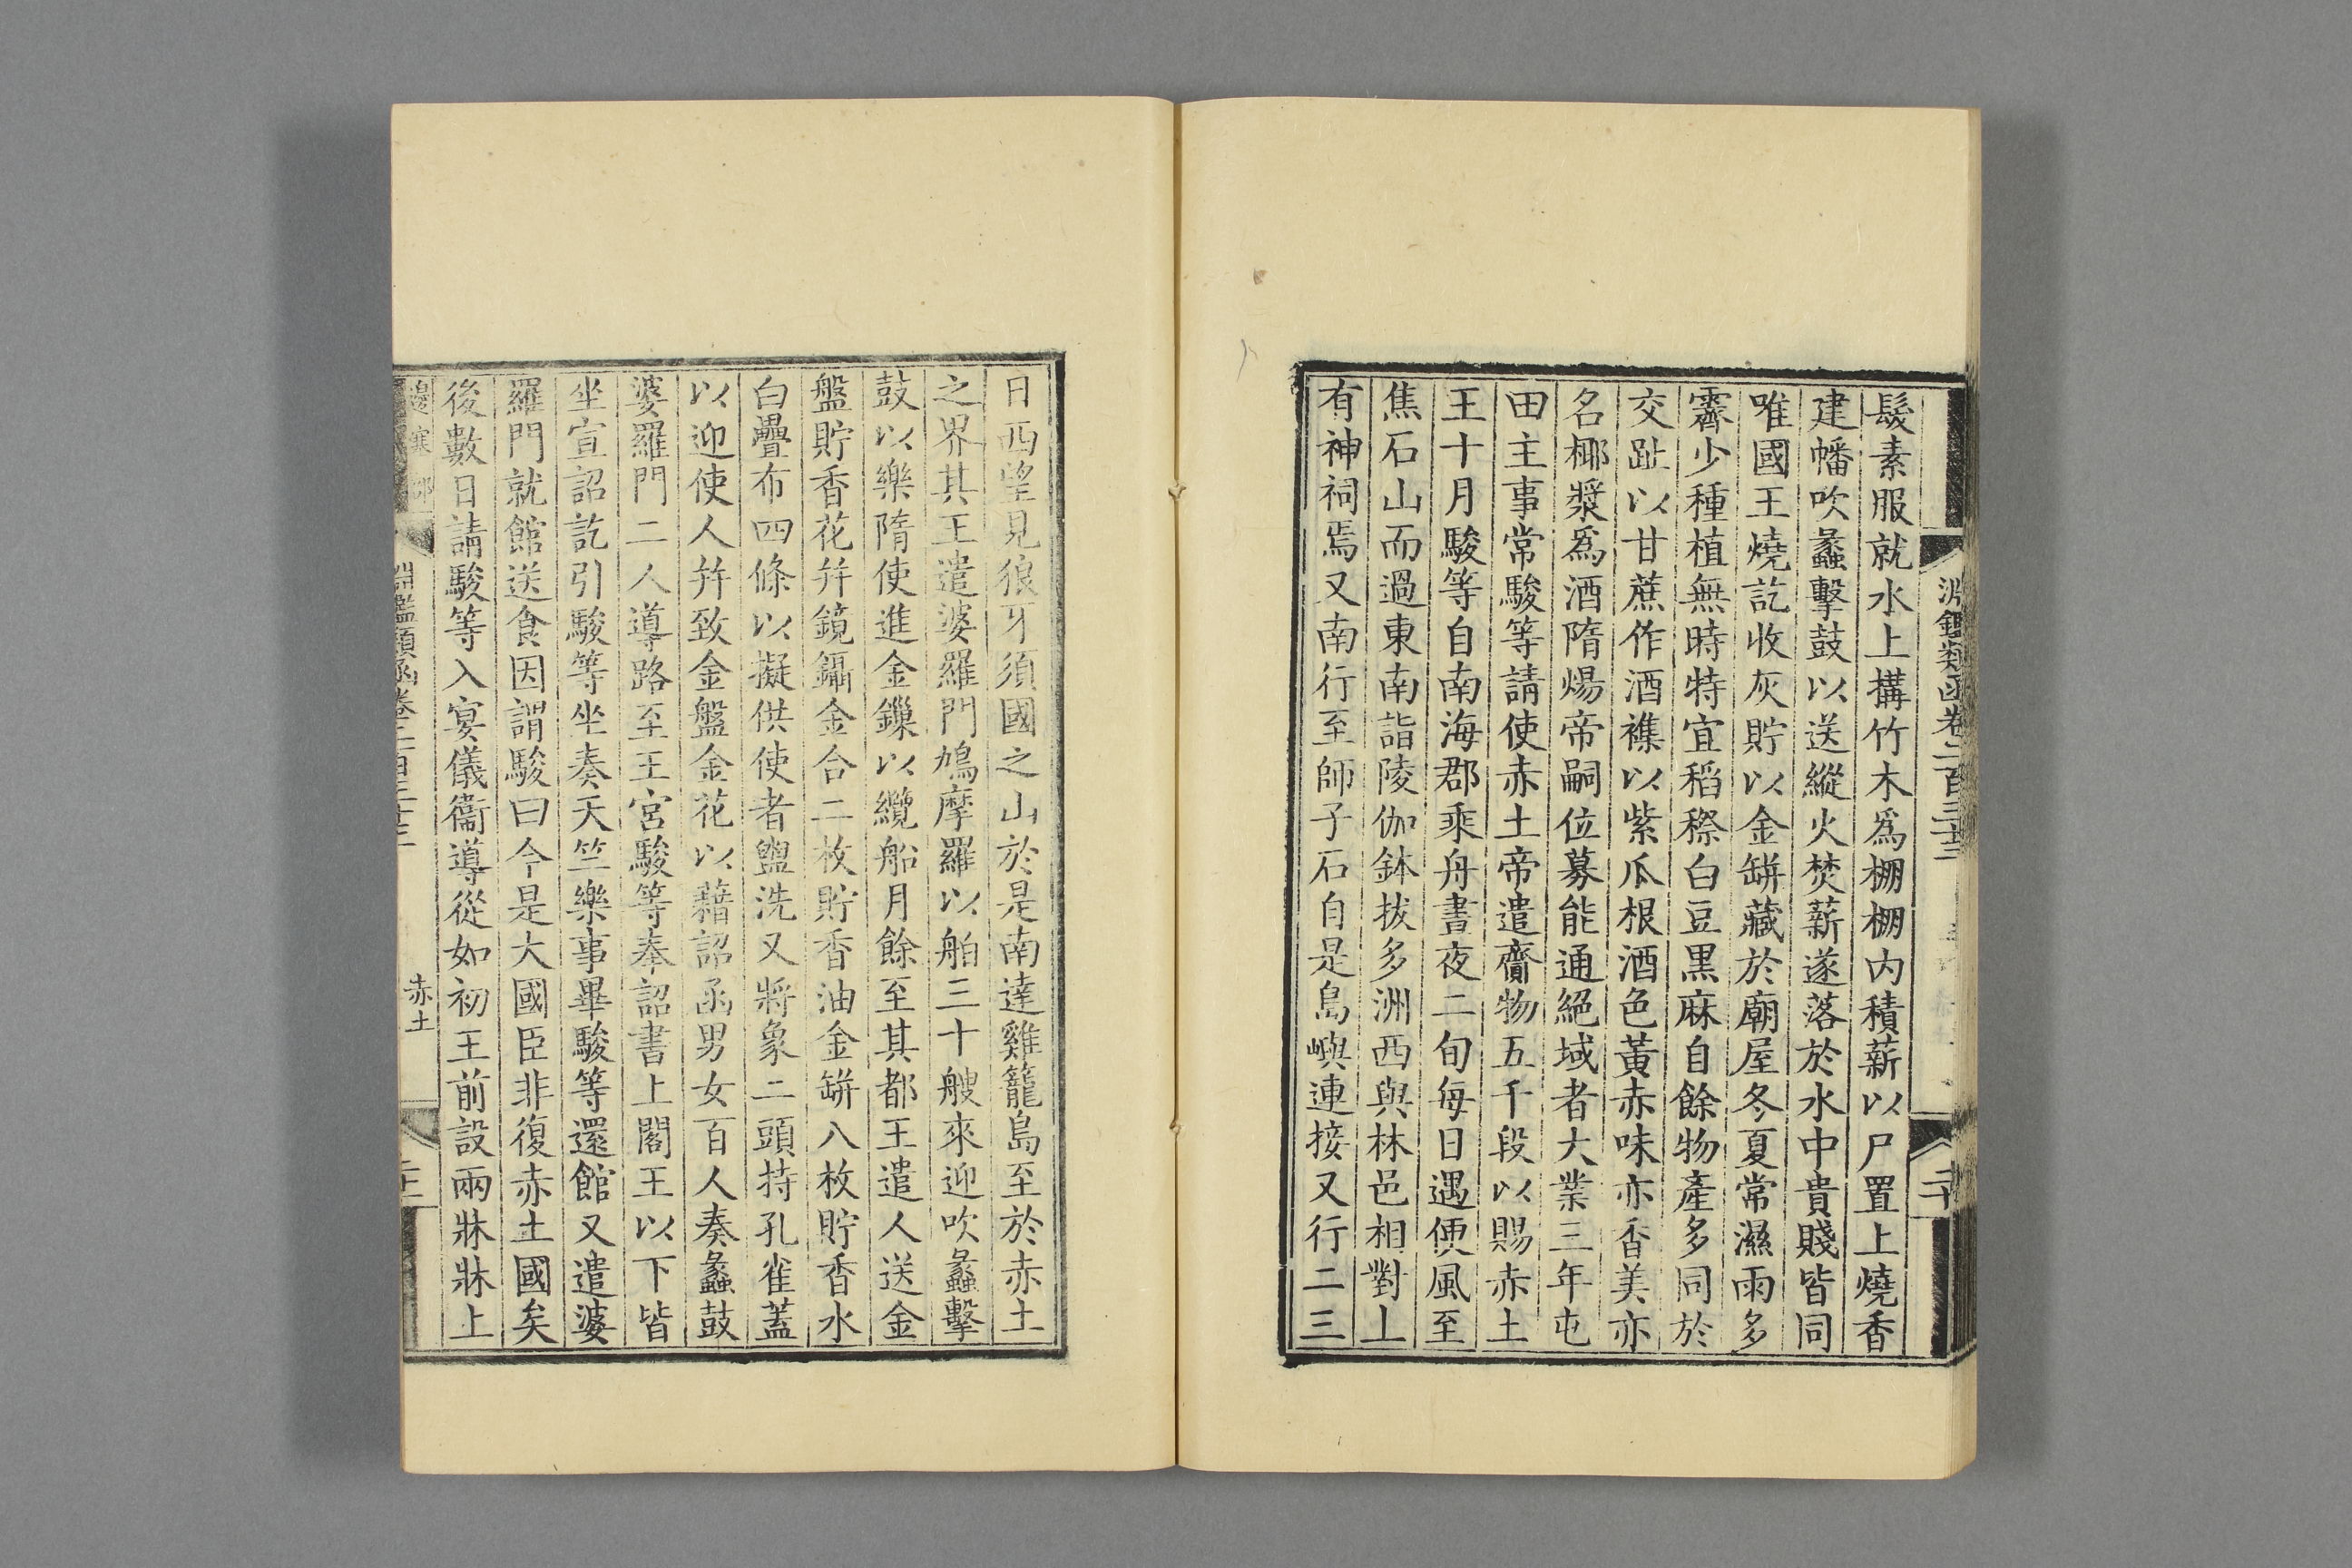 淵鑑類函卷二百三十三
二十
髮素服就水上搆竹木爲棚棚内積薪以尸置上燒香
建幡吹蠡擊鼓以送縱火焚薪遂落於水中貴賤皆同
唯國王燒訖收灰貯以金缾藏於廟屋冬夏常濕雨多
霽少種植無時特宜稻穄白豆黑麻自餘物產多同於
交趾以甘蔗作酒襍以紫瓜根酒色黃赤味亦香美亦
名椰漿爲酒隋煬帝嗣位募能通絕域者大業三年屯
田主事常駿等請使赤土帝遣齎物五千段以賜赤土
王十月駿等自南海郡乘舟晝夜二旬每日遇便風至
焦石山而過東南詣陵伽鉢拔多洲西與林邑相對上
有神祠焉又南行至師子石自是島嶼連接又行二三
日西望見狼牙須國之山於是南達雞籠島至於赤土
之界其王遣婆羅門鳩摩羅以舶三十艘來迎吹蠡擊
鼓以樂隋使進金鏁以纜船月餘至其都王遣人送金
盤貯香花并鏡鑷金合二枚貯香油金缾八枚貯香水
白疊布四條以擬供使者盥洗又將象二頭持孔雀蓋
以迎使人并致金盤金花以藉詔函男女百人奏蠡鼓
婆羅門二人導路至王宮駿等奉詔書上閣王以下皆
坐宣詔訖引駿等坐奏天竺樂事畢駿等還館又遣婆
羅門就館送食因謂駿曰今是大國臣非復赤土國矣
後數日請駿等入宴儀衞導從如初王前設兩牀牀上
邊塞部
淵鑑類函卷二百三十三
赤土